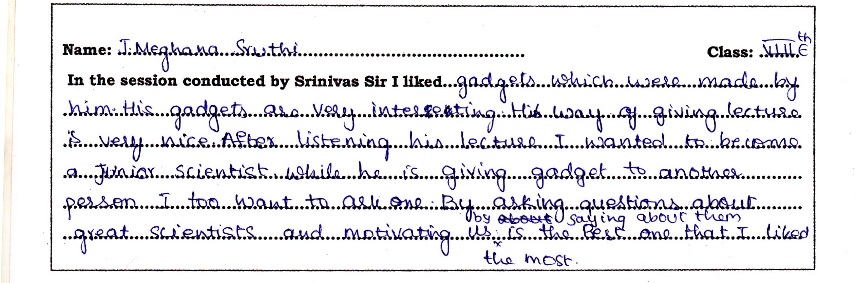 Name: J.Meghana Sruthi Class: VIII th E
In the session conducted by Srinivas Sir I liked gadgets which were made by
him. His gadgets are very interesting. His way of giving lecture
is very nice. After listening his lecture I wanted to become
a Junior scientist. While he is giving gadget to another
person I too want to ask one. By asking questions about
by about saying about them
great scientists and motivating us is the best one that I liked
the most.